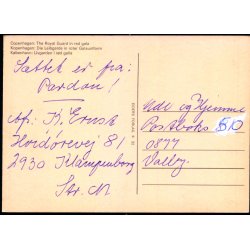 Copenhagen: The Royal Guard in red gala
Kopenhagen: Die Leibgarde in roter Galauniform
København: Livgarden i rød galla
Sættet er fra:
Pardon!
Afs. K. Ernst
Hvidørevej 81
2930 Klampenborg
Str. M
Ude og Hjemme
Postboks
0877
Valby.